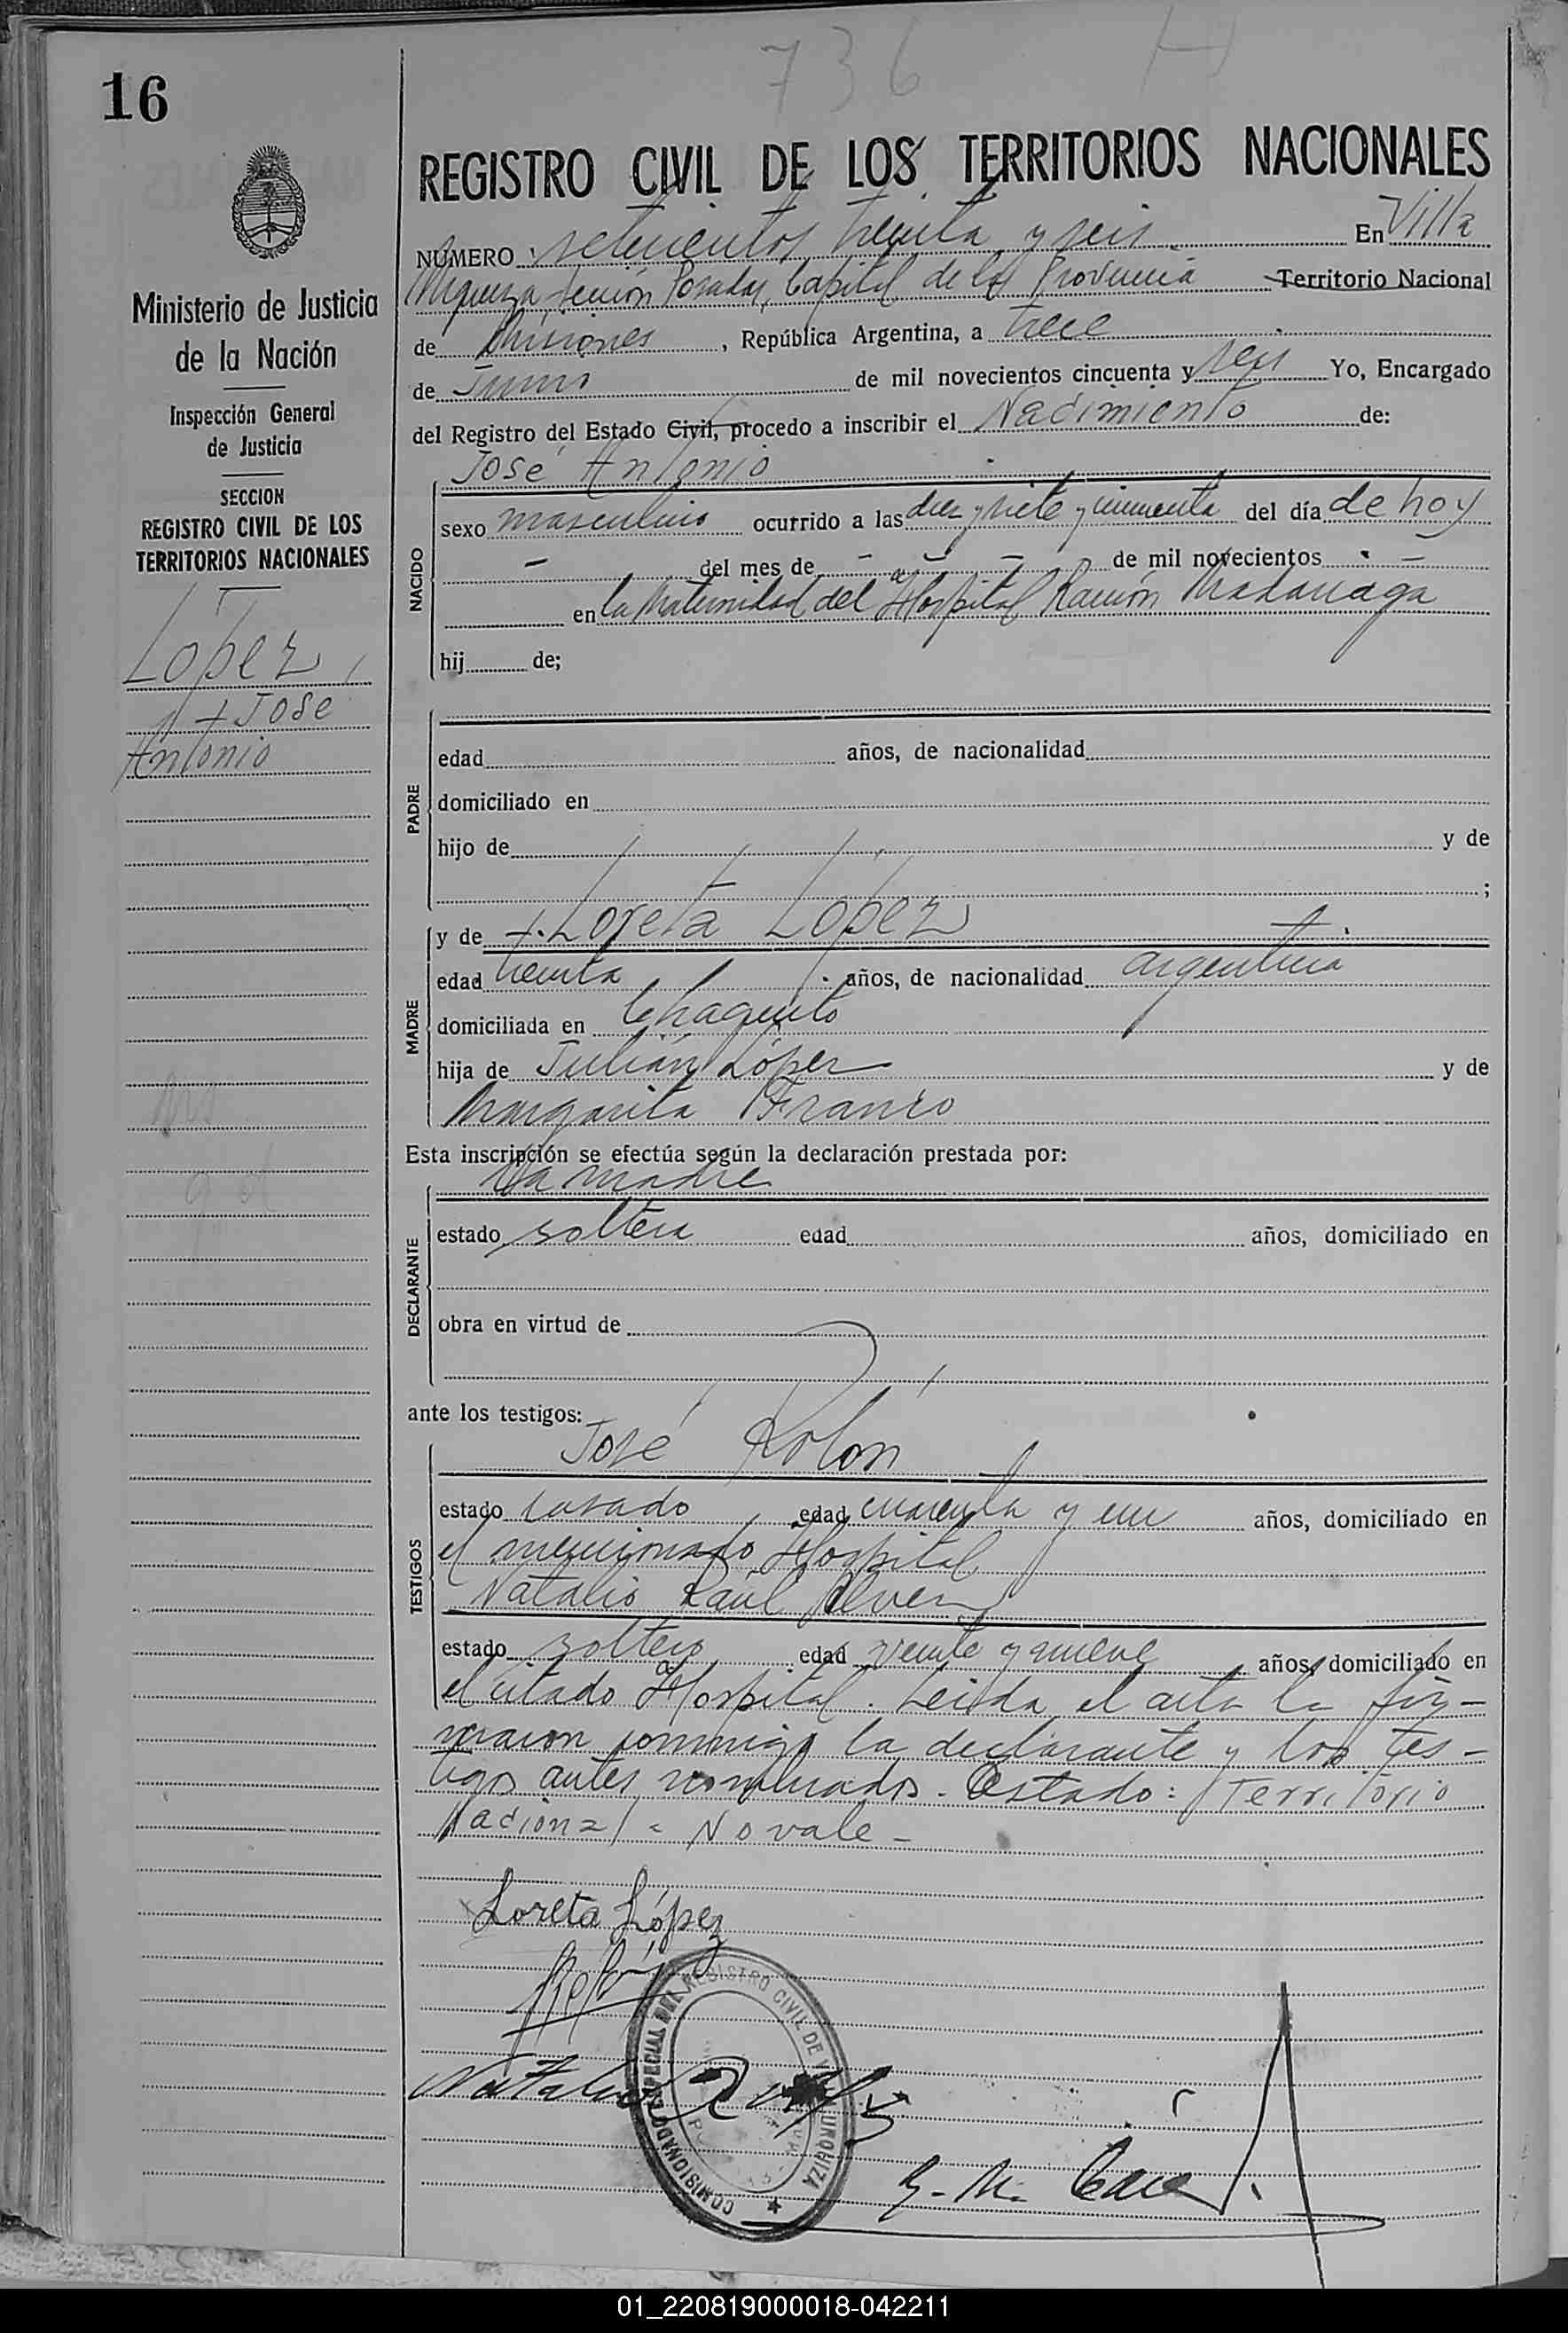 736
16
REGISTRO CIVIL DE LOS TERRITORIOS NACIONALES
NUMERO setecientos treinta y seis En Villa
Urquiza sección Posadas, Capital de la Provincia Territorio Nacional
de Misiones, República Argentina, a trece
de Junio de mil novecientos cincuenta y seis Yo, Encargado
del Registro del Estado Civil, procedo a inscribir el Nacimiento de:
José Antonio
NACIDO
sexo masculino ocurrido a las diez y siete y cincuenta del día de hoy
— del mes de — — — de mil novecientos — 
en la Maternidad del Hospital Ramón Madariaga
hij de;
PADRE
edad años, de nacionalidad
domiciliado en
hijo de y de
;
MADRE
y de Loreta López
edad treinta años, de nacionalidad argentina
domiciliada en Chaquito
hija de Julián López y de
Margarita Franco
Esta inscripción se efectúa según la declaración prestada por:
La madre
DECLARANTE
estado soltera edad años, domiciliado en
obra en virtud de
ante los testigos:
José Rolón
TESTIGOS
estado casado edad cuarenta y un años, domiciliado en
el mencionado Hospital
Natalio Raúl
estado soltero edad veinte y nueve años, domiciliado en
el citado Hospital. Leída el acta la fir-
maron conmigo la declarante y los tes-
tigos antes nombrados. Testado: Territorio
Nacional - No vale -
Loreta López
Ministerio de Justicia
de la Nación
Inspección General
de Justicia
SECCION
REGISTRO CIVIL DE LOS
TERRITORIOS NACIONALES
López,
José
Antonio
COMISIONADO ESPECIAL DEL REGISTRO CIVIL DE VILLA URQUIZA
01_220819000018-042211